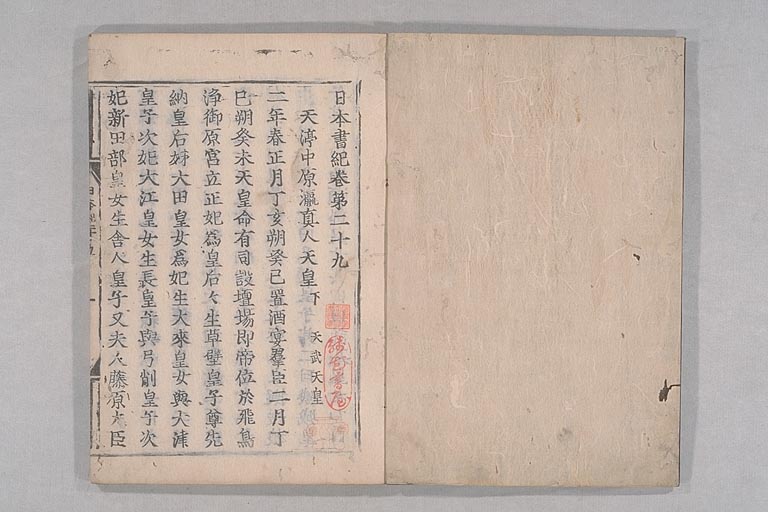 日本書紀巻第二十九
天渟中原瀛真人天皇下 天武天皇
二年春正月丁亥朔癸巳置酒宴羣臣二月丁
巳朔癸未天皇命有司設壇場即帝位於飛鳥
浄御原宮立正妃為皇后々生草壁皇子尊先
納皇后姉大田皇女為妃生大來皇女與大津
皇子次妃大江皇女生長皇子與弓削皇子次
妃新田部皇女生舎人皇子又夫人藤原大臣